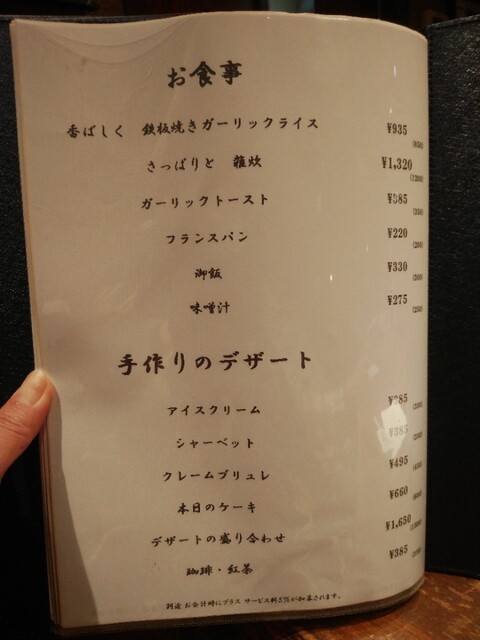 お食事
香ばしく 鉄板焼きガーリックライス ¥935
(850)
さっぱりと 雑炊 ¥1,320
(1200)
ガーリックトースト ¥385
(350)
フランスパン ¥220
(200)
御飯 ¥330
(300)
味噌汁 ¥275
(250)
手作りのデザート
アイスクリーム
シャーベット ¥385
クレームブリュレ ¥495
(450)
本日のケーキ ¥660
(600)
デザートの盛り合わせ ¥1,650
(1500)
珈琲・紅茶 ¥385
(350)
別途 お会計時にプラス サービス料5%が加算されます。